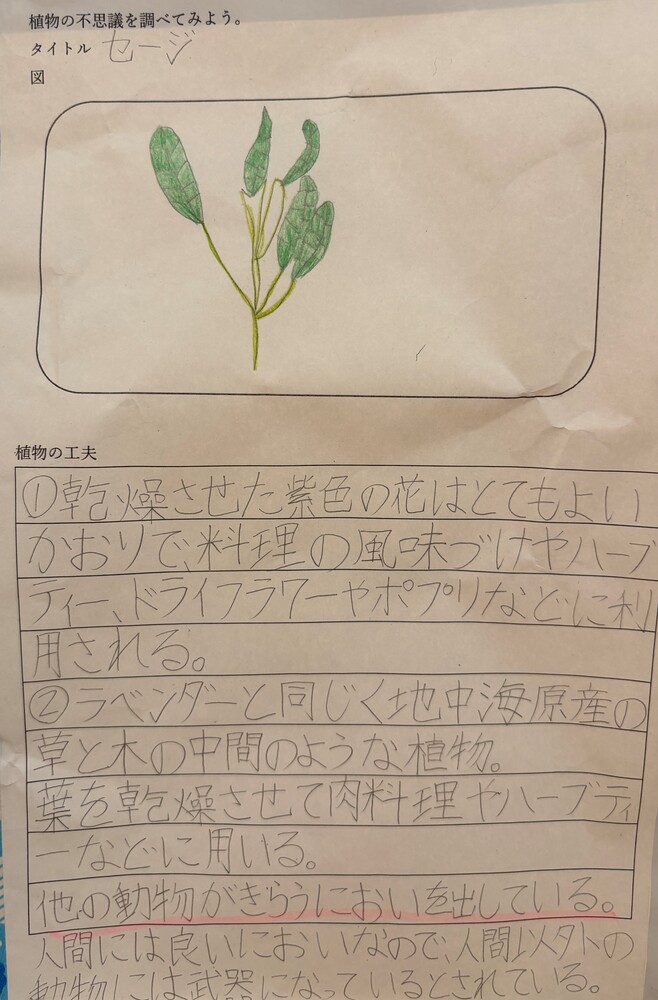 植物の不思議を調べてみよう。
タイトル セージ
図
植物の工夫
①乾燥させた紫色の花はとてもよい
かおりで、料理の風味づけやハーブ
ティー、ドライフラワーやポプリなどに利
用される。
②ラベンダーと同じく地中海原産の
草と木の中間のような植物。
葉を乾燥させて肉料理やハーブティ
ーなどに用いる。
他の動物がきらうにおいを出している。
人間には良いにおいなので、人間以外の
動物には武器になっているとされている。